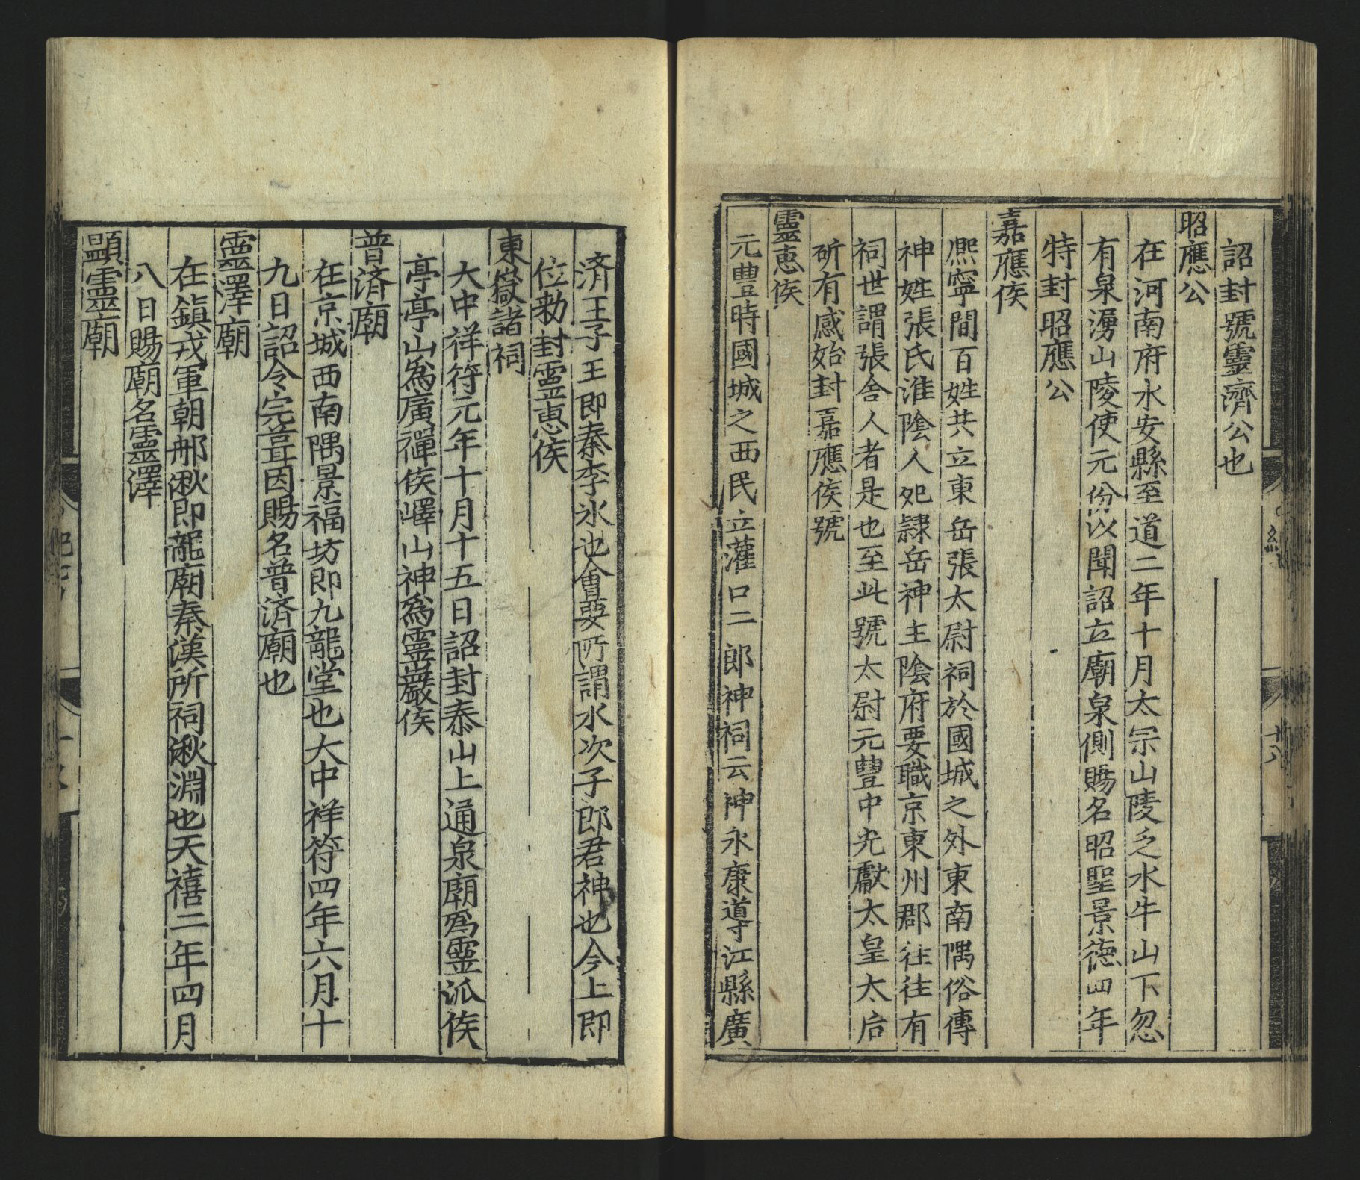 詔封號靈濟公也
昭應公
在河南府水安縣至道二年十月太宗山陵之水牛山下忽
有泉湧山陵使元份以聞詔立廟泉側賜名昭聖景德四年
特封昭應公
嘉應侯
熈寧間百姓共立東岳張太尉祠於國城之外東南隅俗傳
神姓張氏淮隂人祀隷岳神主隂府要職京東州郡往往有
祠世謂張舎人者是也至此號太尉元豐中光獻太皇太后
祈有感始封嘉應侯號
靈惠侯
元豐時國城之西民立灌口二郎神祠云神永康導江縣廣
済王子王即秦李氷也會要所謂水次子郎君神也今上即
位勑封靈惠侯
東嶽諸祠
大中祥符元年十月十五日詔封泰山上通泉廟爲靈派侯
亭亭山爲廣禪侯嶧山神爲靈巖侯
普済廟
在京城西南隅景福坊即九龍堂也大中祥符四年六月十
九日詔令完葺因賜名普済廟也
靈澤廟
在鎮戎軍朝那湫即龍廟秦漢所祠湫淵也天禧二年四月
八日賜廟名靈澤
顕靈廟